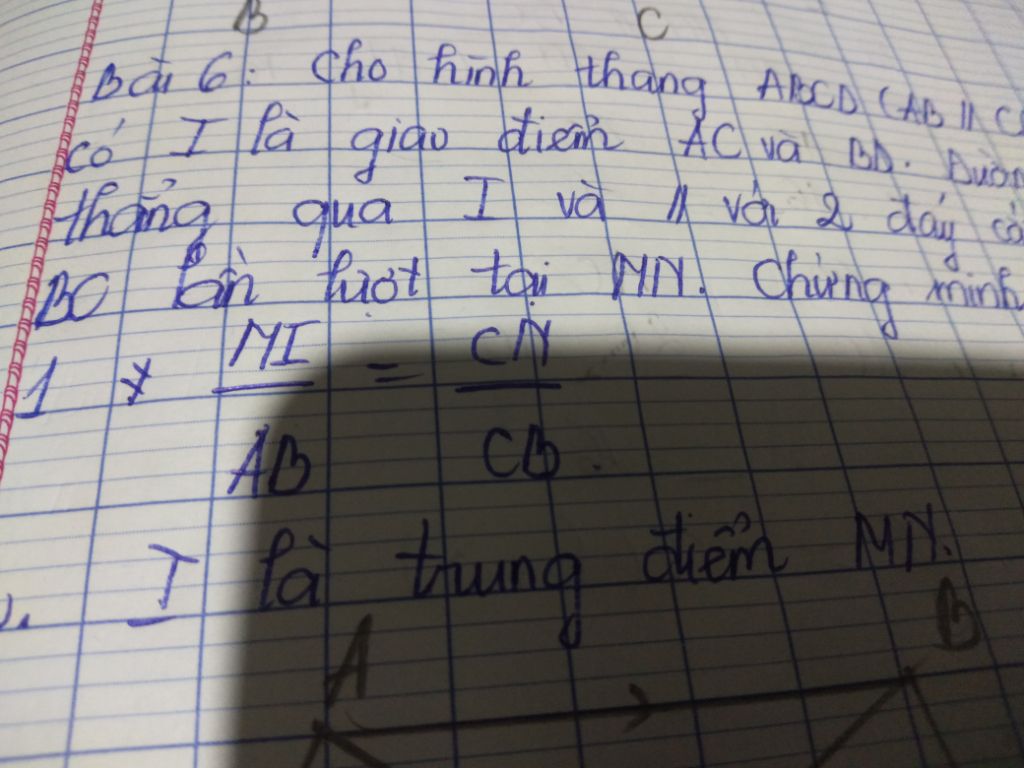 B C
Bài 6: Cho hình thang ABCD (AB // C
có I là giao điểm AC và BD. Đườn
thẳng qua I và // với 2 đáy cắ
BC lần lượt tại MN. Chứng minh
1 * MI = CN
AB CB.
I là trung điểm MN.
A B